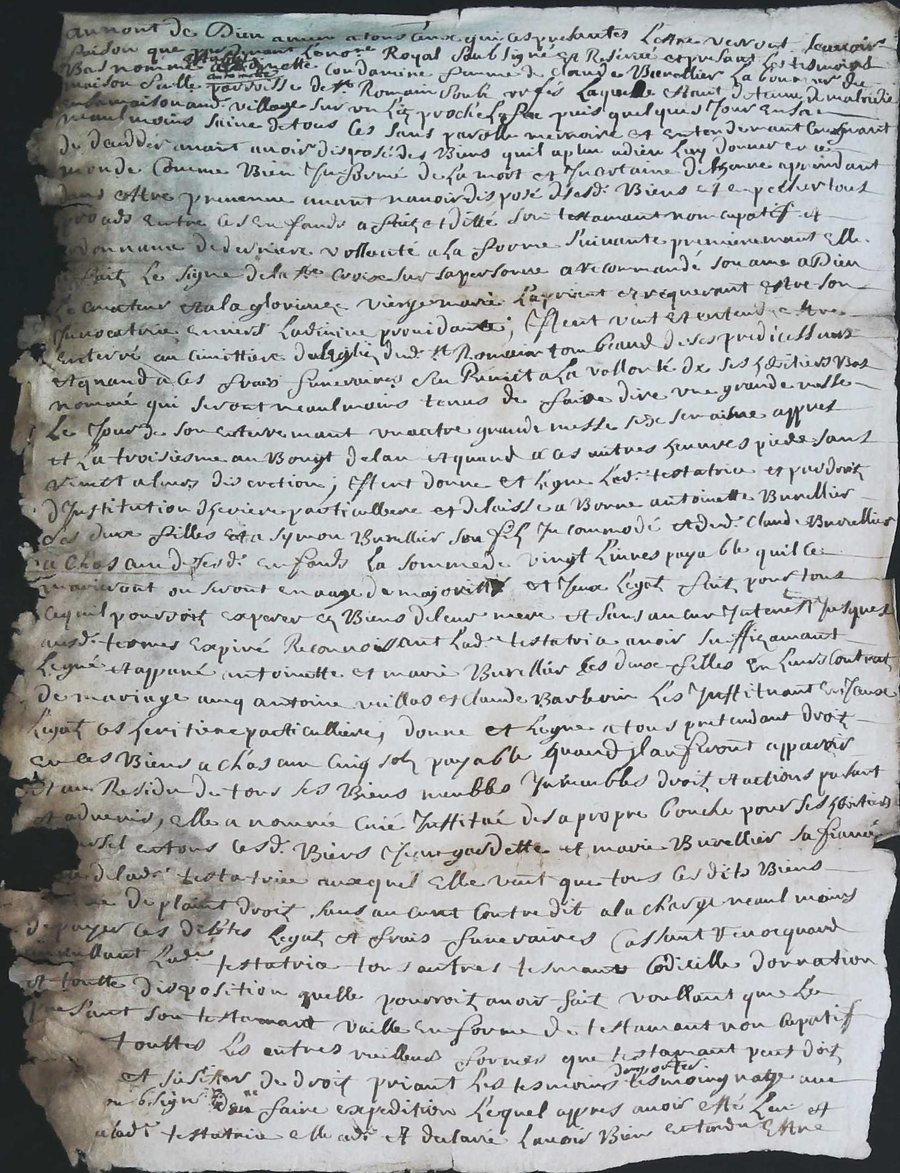 au nom de Dieu amen a tous ceux qui ces presantes Lettre verront scavoir
faison que pardevant Le no.re Royal Soubsigné Et Reservé et presant Les tesmoins
Bas nommé Condamine femme de Claude Burellier La
maison parroisse de S.t Romain Laquelle estant detenue de maladie
en sa maison aud. village sur un Lit proche Le feu puis quelques Jour En sca
neaulmoins saine de tous ces sans parolle memoire et Entendemant craignant
de deceder avant avoir disposé des Biens quil a plu a dieu Luy donner en ce
monde Comme Bien Informé de La mort et Incertaine de Lheure apreindant
dens estre prevenue avant navoir disposé desd. Biens et empecher tous
proces entre ces Enfands a fait et ditté son testamant noncupatif et
ordonnance de derniere vollonté a La forme suivante premieremant Elle
a fait Le signe de la S.te Croix sur sa personne a recommandé son ame a Dieu
Le Createur et a la glorieuse vierge marie La priant et requerant estre son
Invocatrice envers La divine providance; Item veut et entend estre
enterré au cimettiere de Leglize dud. S.t Romain tombeaud de ses predicesseurs
et quand a ces frais funeraires sen Remet a La vollonté de ses heritiers Bas
nommé qui seront neaulmoins tenus de faire dire une grande messe
Le Jour de son enterremant un autre grande messe appres
et La troisiesme au Bougt de Lan et quand a ces autres heuvres piede sans
remet a Leurs discretion; Item donne et Legue Lad. testatrice et par droit
dInstitution dheriere particulliere et delaisse a Bonne antoinette Burellier
ces deux filles et a Symon Burellier son fils Incommodé et dud. Claude Burellier
a Chascun desd. enfands La somme de vingt Livres payable quil ce
mariront ou seront en aage de majoritté et Iceux Legat fait pour tous
ce quil pourroit esperer es Biens de Leur mere et sans aucun Interest Jusques
ausd. termes Expiré Reconnoissant Lad. testatrice avoir suffizamant
Legué et appané antoinette et marie Burellier ses deux filles en Leurs contrat
de mariage avec antoine vallas et Claude Barbevin Les Instituant en Iceux
Legat ces heritiere particulliere, donne et Legue a tous pretendant droit
en ces Biens a Chascun Cinq solz payable quand Ilan feront apparoir
Et au Residu de tous ses Biens meubles Immeubles droit et actions presant
et advenir, elle a nommée Creé Institué de sa propre bouche pour ses heritiers
en tous ces d. Biens Jean gardette et marie Burellier sa
de Lad. testatrice auxquel elle veut que tous ces dits Biens
de plaint droit sans aucunt contredit a la charge neaulmoins
de payer ces debtes Legat et frais funeraires Cassant Revocquand
annullant Lad. testatrice tous autres tesmant Codicille donnation
et toutte disposition quelle pourroit avoir fait voullant que Le
presant son testamant vaille en forme de testamant noncupatif
touttes Les autres meilleurs formes que testamant peut doit
et subsister de droit priant Les tesmoins den porter tesmoingnage aux
soubsigné den faire expedition Lequel appres avoir esté Leu et
a Lad. testatrice elle a dit et declaré Lavoir Bien entendu Estre